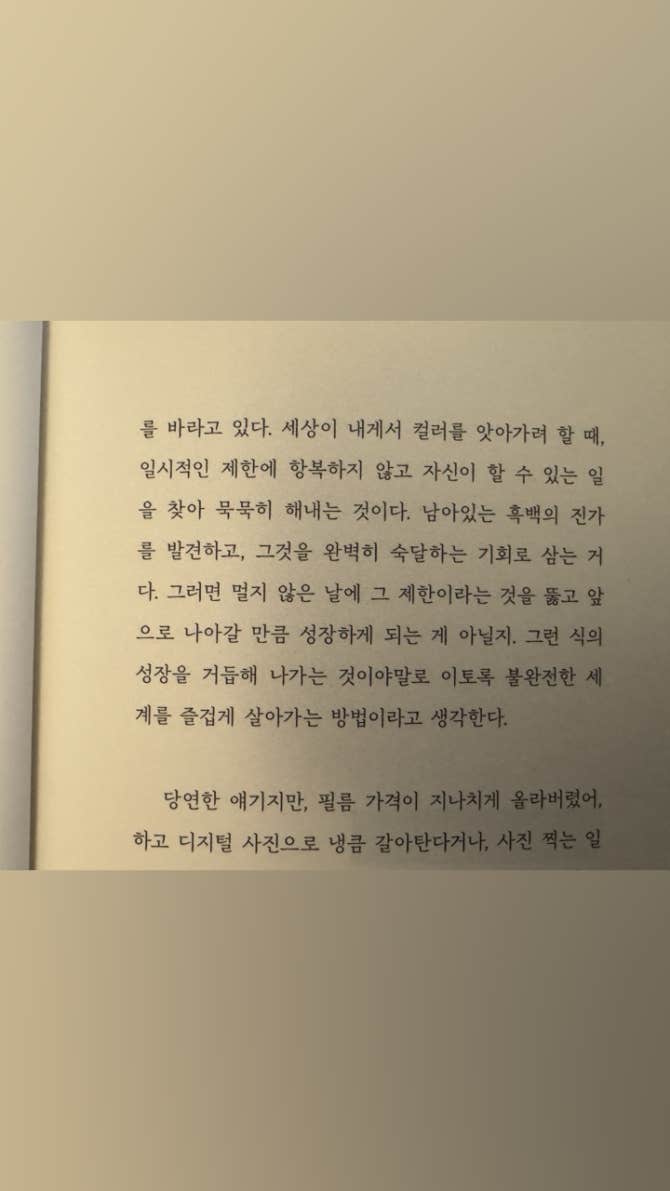 를 바라고 있다. 세상이 내게서 컬러를 앗아가려 할 때,
일시적인 제한에 항복하지 않고 자신이 할 수 있는 일
을 찾아 묵묵히 해내는 것이다. 남아있는 흑백의 진가
를 발견하고, 그것을 완벽히 숙달하는 기회로 삼는 거
다. 그러면 멀지 않은 날에 그 제한이라는 것을 뚫고 앞
으로 나아갈 만큼 성장하게 되는 게 아닐지. 그런 식의
성장을 거듭해 나가는 것이야말로 이토록 불완전한 세
계를 즐겁게 살아가는 방법이라고 생각한다.
당연한 얘기지만, 필름 가격이 지나치게 올라버렸어,
하고 디지털 사진으로 냉큼 갈아탄다거나, 사진 찍는 일